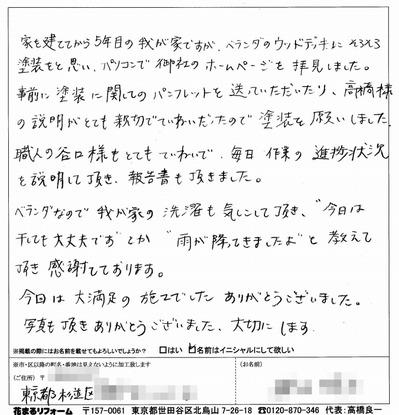 家を建ててから5年目の我が家ですが、ベランダのウッドデッキにそろそろ
塗装をと思い、パソコンで御社のホームページを拝見しました。
事前に塗装に関してのパンフレットを送っていただいたり、高橋様
の説明がとても親切でていねいだったので塗装を願いしました。
職人の谷口様もとてもていねいで、毎日作業の進捗状況
を説明して頂き、報告書も頂きました。
ベランダなので我が家の洗濯も気にして頂き、"今日は
干しても大丈夫です"とか"雨が降ってきましたよ"と教えて
頂き感謝しております。
今回は大満足の施工でした ありがとうございました。
写真も頂きありがとうございました、大切にします。
※掲載の際にはお名前を載せてもよろしいでしょうか？ □はい ☑名前はイニシャルにして欲しい
※市・区以降の町名・番地は見えないように加工致します
（ご住所） 〒 （お名前）
東京都杉並区
花まるリフォーム 〒157-0061 東京都世田谷区北烏山7-26-18 ☎0120-870-346 代表:高橋良一